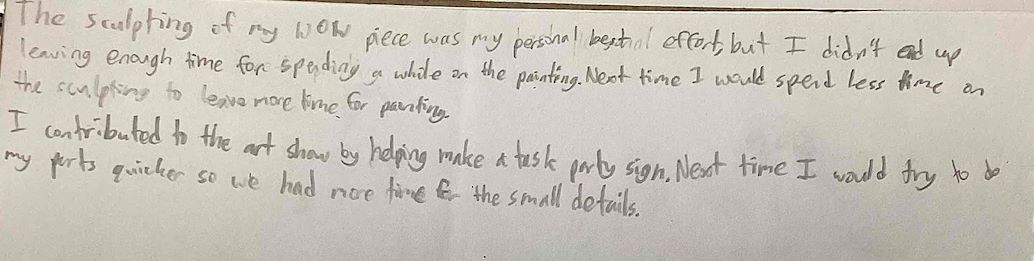 The sculpting of my WOW piece was my personal best effort, but I didn't end up
leaving enough time for spending a while on the painting. Next time I would spend less time on
the sculpting to leave more time for painting.
I contributed to the art show by helping make a task party sign. Next time I would try to do
my parts quicker so we had more time for the small details.